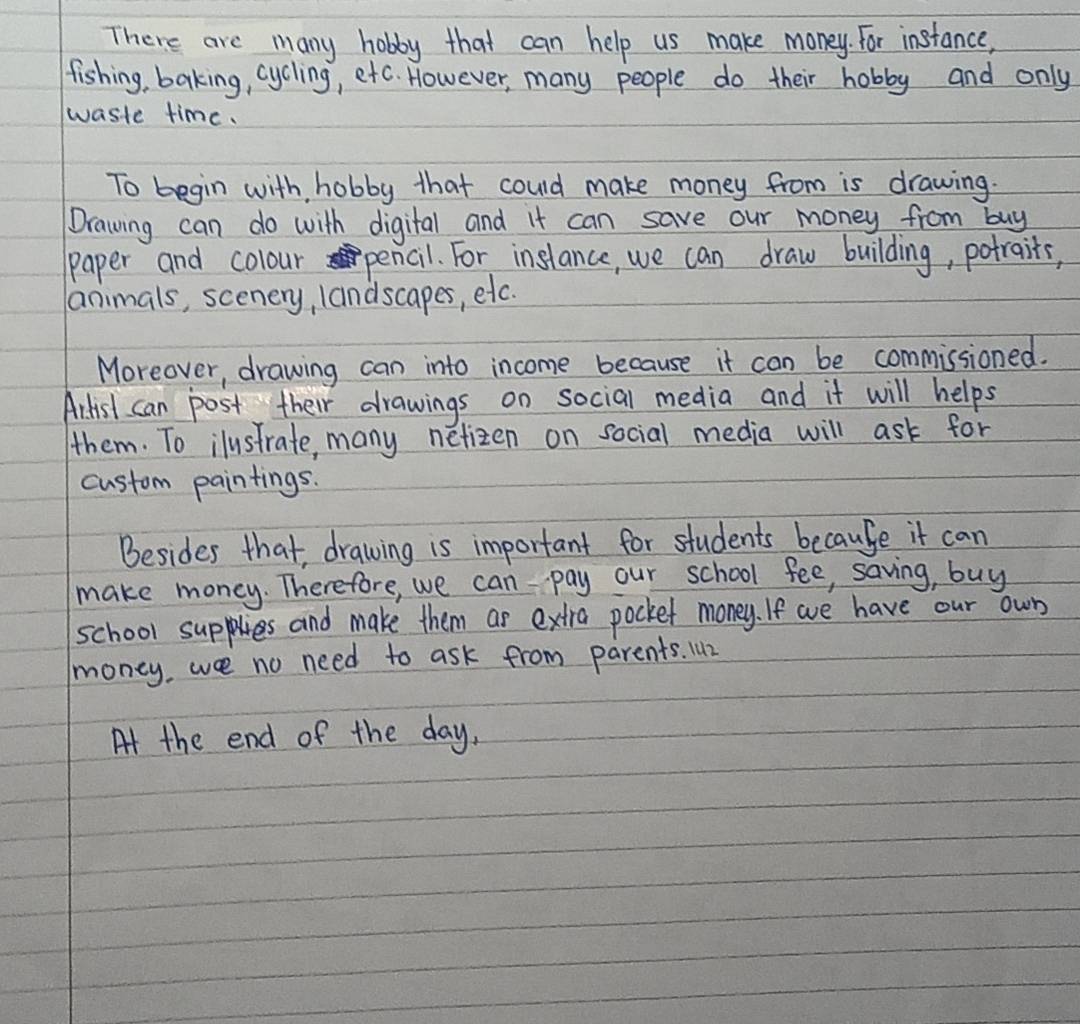 There are many hobby that can help us make money. For instance,
fishing, baking, cycling, etc. However, many people do their hobby and only
waste time.
To begin with, hobby that could make money from is drawing.
Drawing can do with digital and it can save our money from buy
paper and colour pencil. For instance, we can draw building, potraits,
animals, scenery, landscapes, etc.
Moreover, drawing can into income because it can be commissioned.
Artist can post their drawings on social media and it will helps
them. To ilustrate, many netizen on social media will ask for
custom paintings.
Besides that, drawing is important for students because it can
make money. Therefore, we can pay our school fee, saving, buy
school supplies and make them as extra pocket money. If we have our own
money, we no need to ask from parents. 142
At the end of the day,